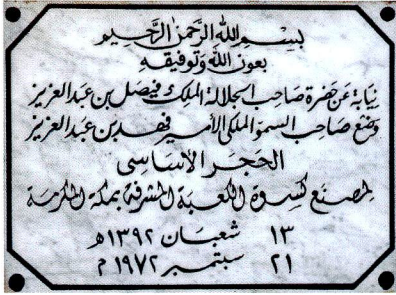 بسم الله الرحمن الرحيم
بعون الله وتوفيقه
نيابة عن حضرة صاحب الجلالة الملك فيصل بن عبدالعزيز
وضع صاحب السمو الملكي الأمير فهد بن عبدالعزيز
الحجر الأساسي
لمصنع كسوة الكعبة المشرفة بمكة المكرمة
١٣ شعبان ١٣٩٢ هـ
٢١ سبتمبر ١٩٧٢ م